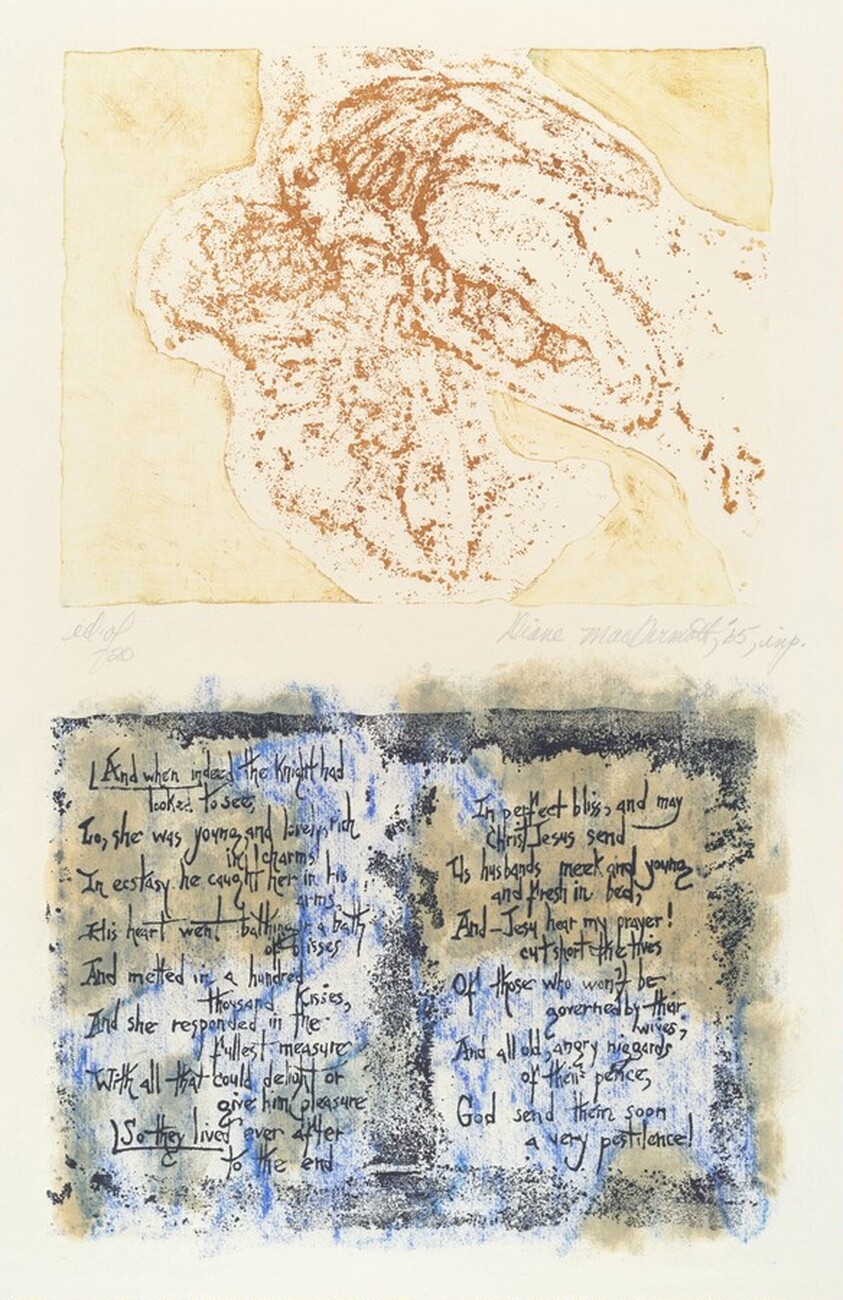 ed. of
/20
Diane MacDermott, '65, imp.
And when indeed the Knight had
looked to see,
Lo, she was young and lovely, rich
in charms!
In ecstasy he caught her in his
arms,
His heart went bathing in a bath
of blisses
And melted in a hundred
thousand kisses,
And she responded in the
fullest measure
With all that could delight or
give him pleasure
So they lived ever after
to the end
In perfect bliss, and may
Christ Jesus send
Us husbands meek and young
and fresh in bed,
And—Jesu hear my prayer!
cut short the lives
Of those who won't be
governed by their
wives,
And all old, angry niggards
of their pence,
God send them soon
a very pestilence!